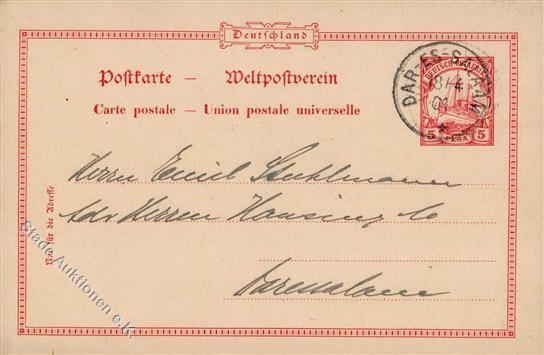 Deutschland
Postkarte — Weltpostverein
Carte postale — Union postale universelle
DAR-ES-SALAAM
DEUTSCH-OSTAFRIKA
5 PESA 5
Herrn Emil Stuhlmann
Adr Herren Hansing Co
Daressalam
Nur für die Adresse
Stade Auktionen e.K.